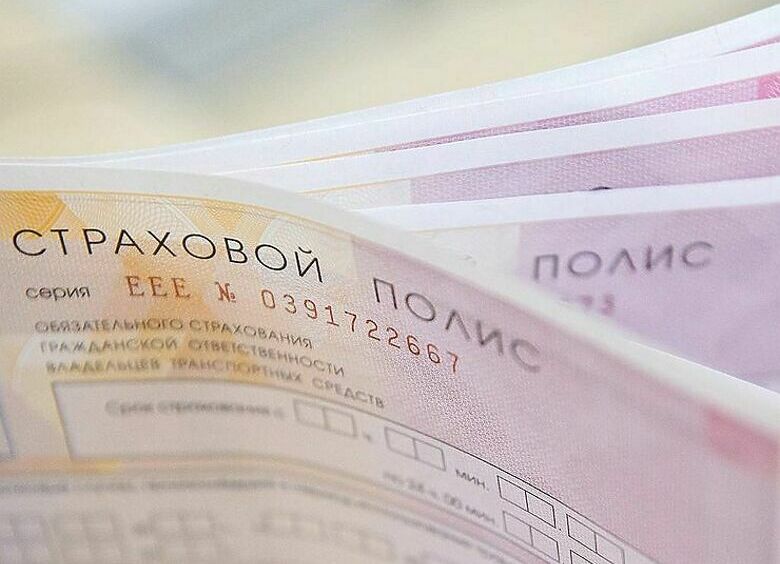 СТРАХОВОЙ ПОЛИС
серия ЕЕЕ № 0391722667
ОБЯЗАТЕЛЬНОГО СТРАХОВАНИЯ
ГРАЖДАНСКОЙ ОТВЕТСТВЕННОСТИ
ВЛАДЕЛЬЦЕВ ТРАНСПОРТНЫХ СРЕДСТВ
Срок страхования с ч. мин.
по 24 ч. 00 мин.
ПОЛИС